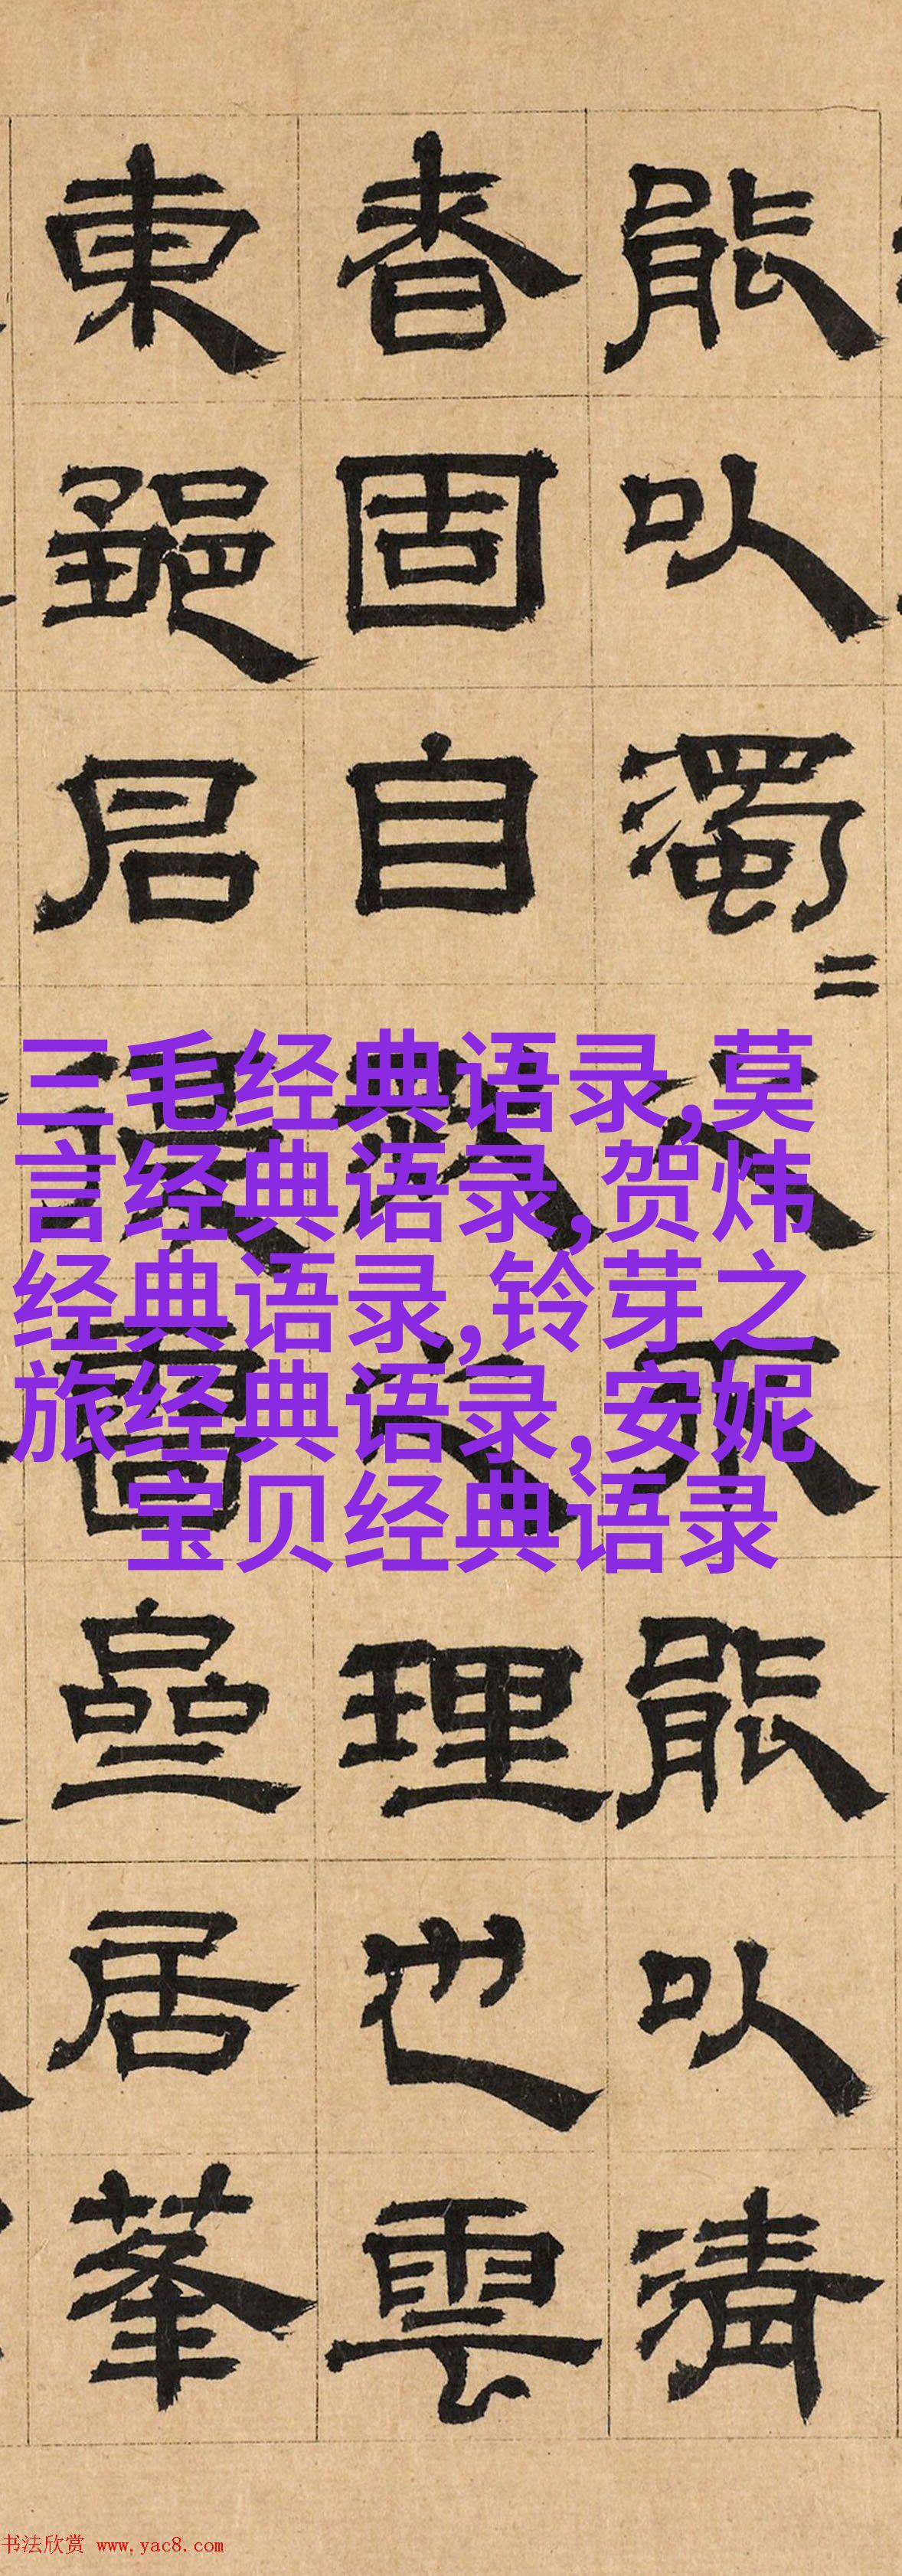 能以濁二人不能以清
者固自之理也雲
東居
三毛经典语录,莫
言经典语录,贺炜
经典语录,铃芽之
旅经典语录,安妮
宝贝经典语录
书法欣赏 www.yac8.com